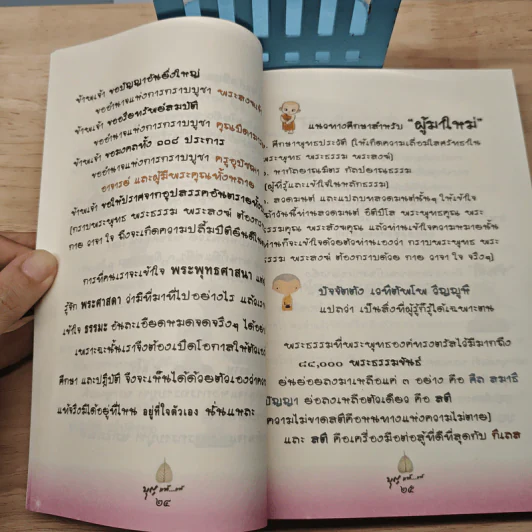 ข้าพเจ้า ขอปัญญาอันยิ่งใหญ่
ขออำนาจแห่งการกราบบูชา พระสงฆ์
ข้าพเจ้า ขออริยทรัพย์สมบัติ
ขออำนาจแห่งการกราบบูชา คุณบิดามารดา
ข้าพเจ้า ขอมงคลทั้ง ๑๐๘ ประการ
ขออำนาจแห่งการกราบบูชา ครูอุปัชฌาย์
อาจารย์ และผู้มีพระคุณทั้งหลาย
ข้าพเจ้า ขอให้ปราศจากอุปสรรคอันตรายทั้งปวง
(กราบพระพุทธ พระธรรม พระสงฆ์ ต้องกราบ
กาย วาจา ใจ ถึงจะเกิดความปลื้มปิติอันดีในใจ)
การที่คนเราจะเข้าใจ พระพุทธศาสนา และ
รู้จัก พระศาสดา ว่ามีที่มาที่ไปอย่างไร แล้วเรา
เข้าใจ ธรรมะ อันละเอียดหมดจดจริงๆ ได้อย่าง
เพราะฉะนั้นเราจึงต้องเปิดโอกาสให้ตัวเอง
ศึกษา และปฏิบัติ จึงจะเห็นได้ด้วยตัวเองว่าความ
แท้จริงมิได้อยู่ที่ไหน อยู่ที่ใจตัวเอง นั่นแหละ
๒๔
แนวทางศึกษาสำหรับ "ผู้มาใหม่"
ศึกษาพุทธประวัติ (ให้เกิดความเลื่อมใสศรัทธาใน
พระพุทธ พระธรรม พระสงฆ์)
หากัลยาณมิตร กัลยาณธรรม
(ผู้ที่รู้และเข้าใจในหลักธรรม)
สวดมนต์ และแปลบทสวดมนต์นั้นๆ ให้เข้าใจ
ถ้าวันนี้ท่านสวดมนต์ อิติปิโส พระพุทธคุณ พระ
ธรรมคุณ พระสังฆคุณ แล้วท่านเข้าใจความหมายนั้น
ท่านก็จะเข้าใจด้วยตัวท่านเองว่า กราบพระพุทธ พระ
ธรรม พระสงฆ์ ต้องกราบด้วย กาย วาจา ใจ จริงๆ)
ปัจจัตตัง เวทิตัพโพ วิญญูหิ
แปลว่า เป็นสิ่งที่ผู้รู้ก็รู้ได้เฉพาะตน
พระธรรมที่พระพุทธองค์ทรงตรัสไว้มีมากถึง
๘๔,๐๐๐ พระธรรมขันธ์
ย่นย่อลงมาเหลือแค่ ๓ อย่าง คือ ศีล สมาธิ
ปัญญา ย่อลงเหลือตัวเดียว คือ สติ
ความไม่ขาดสติคือหนทางแห่งความไม่ตาย)
และ สติ คือเครื่องมือต่อสู้ที่ดีที่สุดกับ กิเลส
๒๕